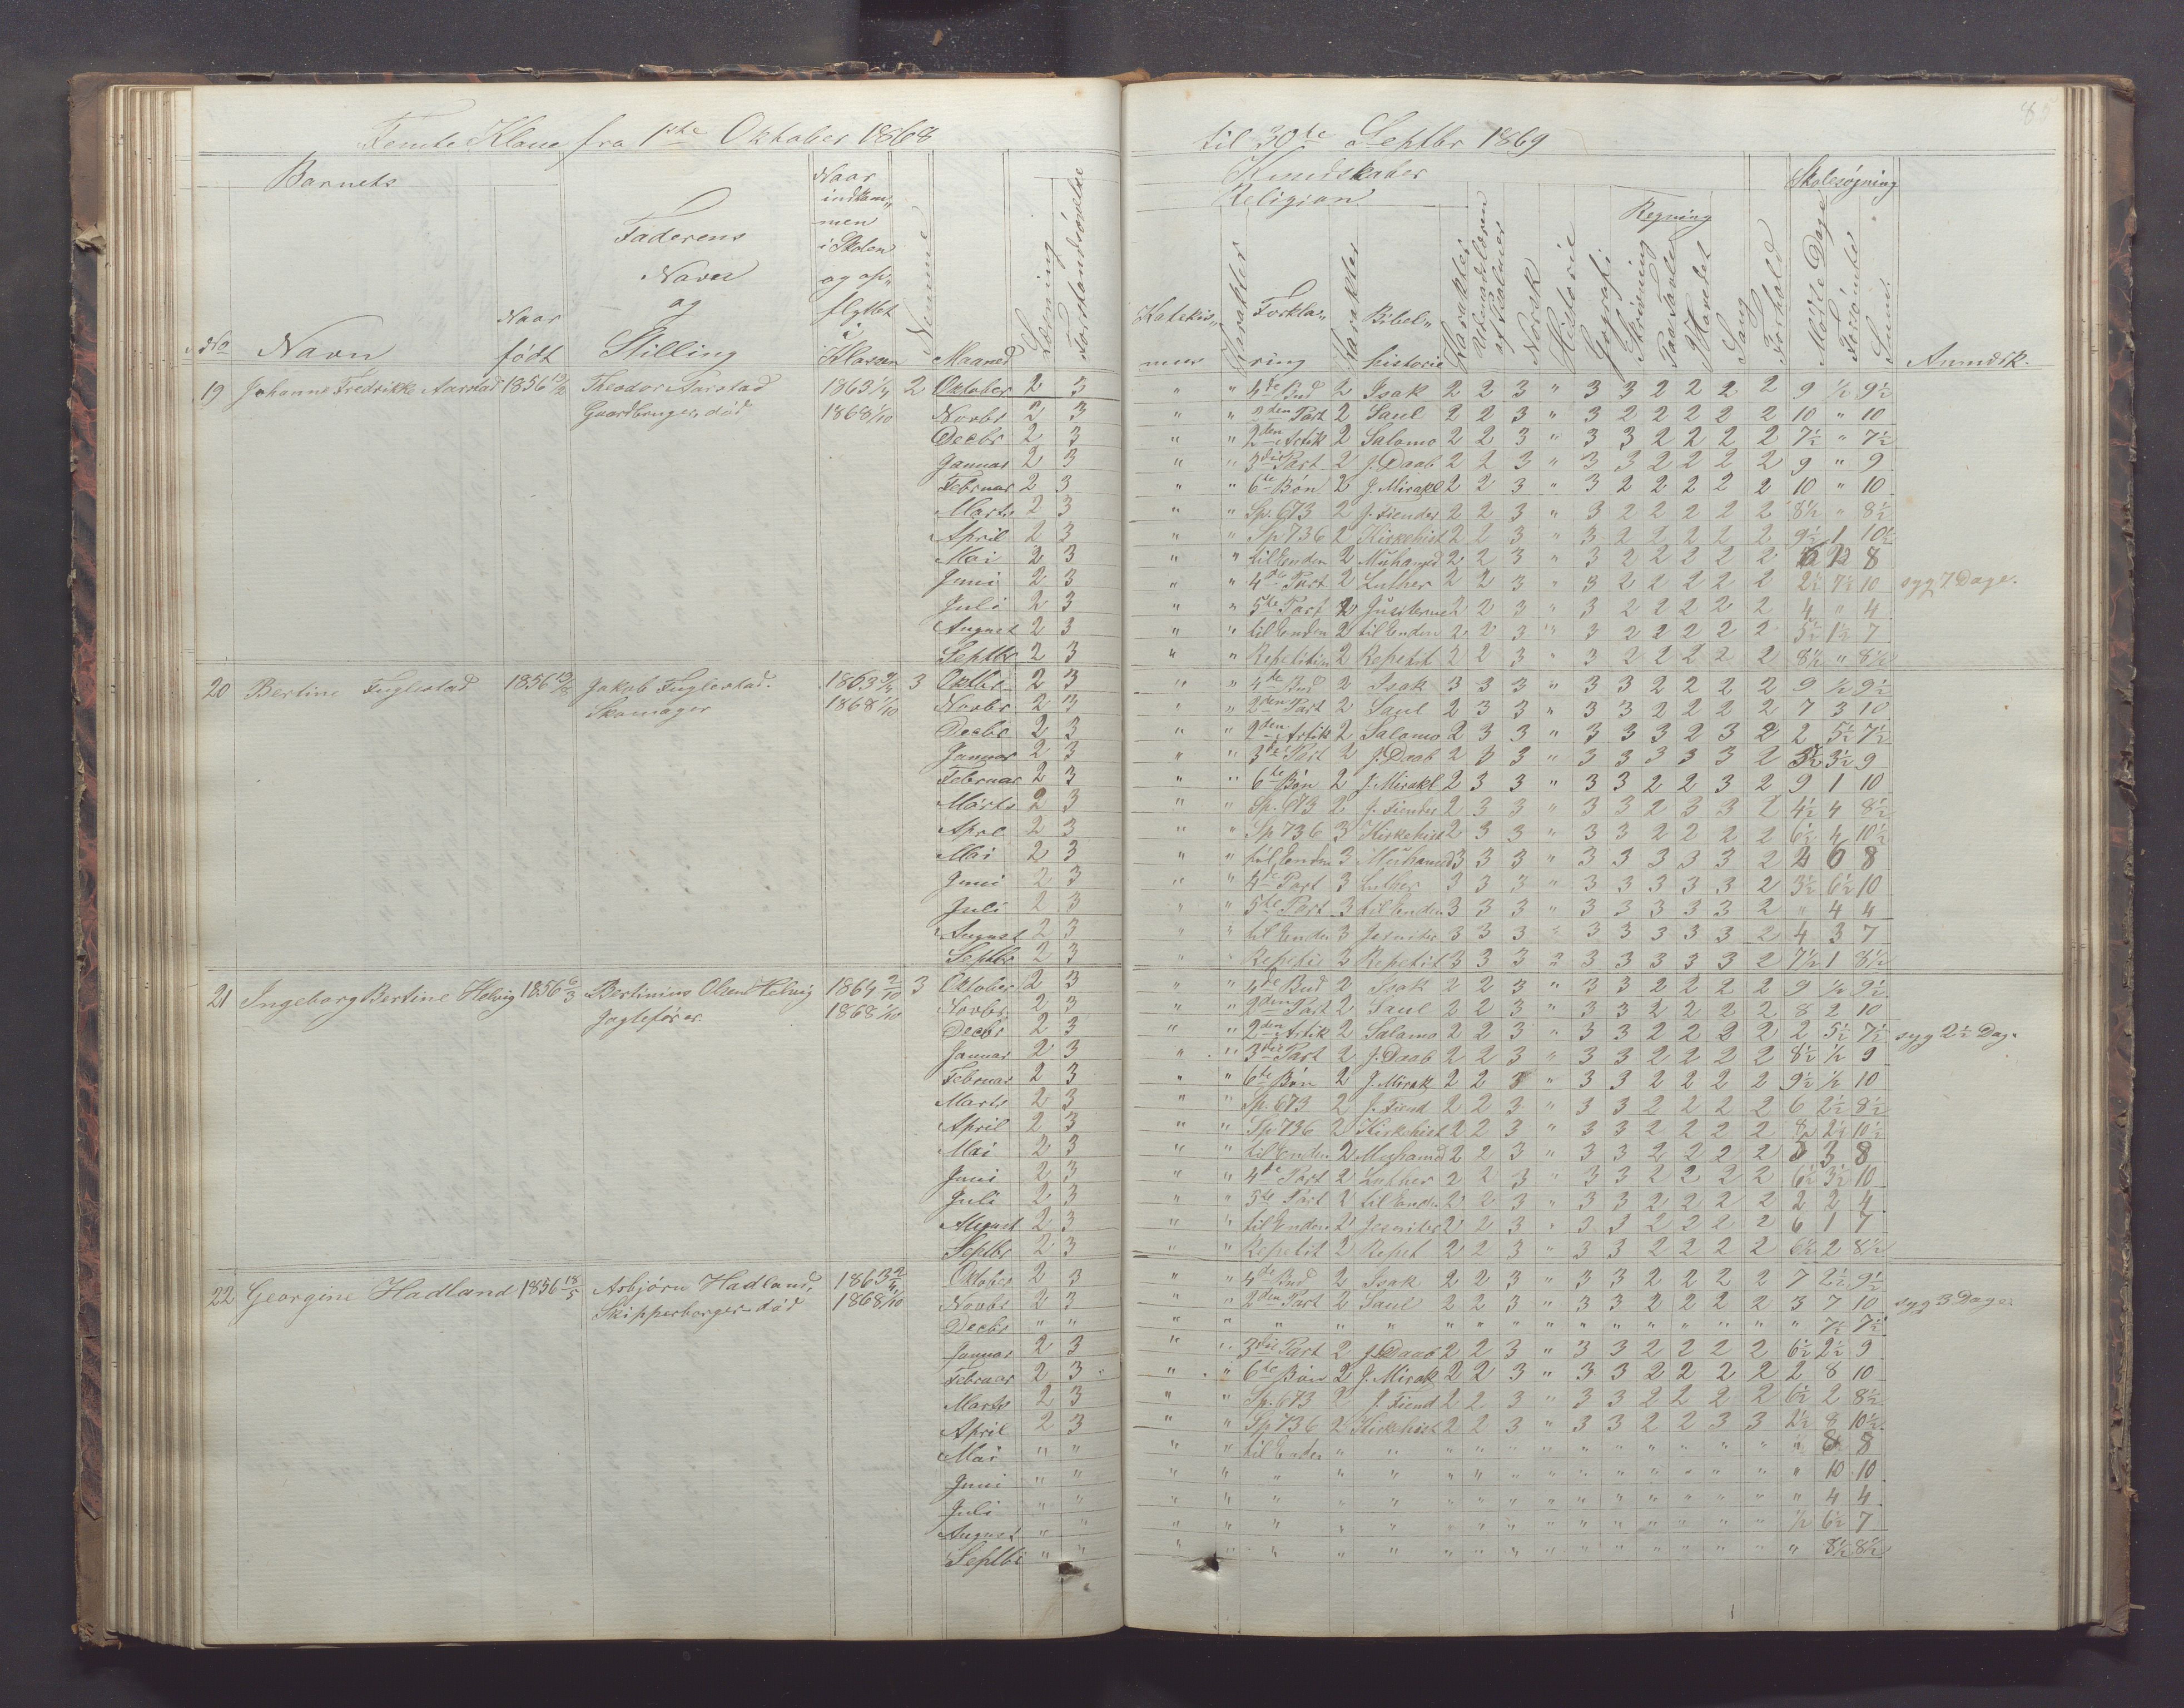 Femte Klasse fra 1ste Oktober 1868 til 30te Septbr 1869
85
Barnets
Faderens Navn og Stilling
Naar indkommen i Skolen og opflyttet i Klassen
Nummer
Maaned
Læsning
Forstandsøvelse
Kundskaber
Religion
Regning
Skolesøgning
No Navn Naar født
Katekismus Karakter Forklaring Karakter Bibelhistorie Karakter Udenadslæren af Psalmer Norsk Historie Geografi Skrivning Paa Tavle I Hovedet Sang Forhold Mødte Dage Forsømte Sum. Anmærk.
19 Johanne Fredrikke Aarstad 1856 Theodor Aarstad 1863 2 Oktober 2 3 " " 4de Bud 2 Isak 2 2 3 " 3 3 2 2 2 2 9 ½ 9½
Gaardbruger, død 1868 1/10 Novbr 2 3 " " 2den Part 2 Saul 2 2 3 " 3 2 2 2 2 2 10 " 10
Decbr 2 3 " " 2den Artik 2 Salomo 2 2 3 " 3 3 2 2 2 2 7½ " 7½
Januar 2 3 " " 3die Part 2 J. Daab 2 2 3 " 3 3 2 2 2 2 9 " 9
Februar 2 3 " " 6te Bøn 2 J. Mirakl 2 2 3 " 3 2 2 2 2 2 10 " 10
Marts 2 3 " " Sp. 673 2 J. Fiender 2 2 3 " 3 2 2 2 2 2 8½ " 8½
April 2 3 " " Sp 736 2 Kirkehist 2 2 3 " 3 2 2 2 2 2 9½ 1 10½
Mai 2 3 " " til Enden 2 Muhamed 2 2 3 " 3 2 2 2 2 2 6 2 8
Juni 2 3 " " 4de Part 2 Luther 2 2 3 " 3 2 2 2 2 2 2½ 7½ 10 syg 7 Dage.
Juli 2 3 " " 5te Part 2 Jusiterne 2 2 3 " 3 2 2 2 2 2 4 " 4
August 2 3 " " til Enden 2 til Enden 2 2 3 " 3 2 2 2 2 2 5½ 1½ 7
Septbr 2 3 " " Repetition 2 Repetit 2 2 3 " 3 2 2 2 2 2 8½ " 8½
20 Bertine Fuglestad 1856 Jakob Fuglestad. 1863 3 Oktbr 2 3 " " 4de Bud 2 Isak 3 3 3 " 3 3 2 2 2 2 9 ½ 9½
Skomager 1868 1/10 Novbr 2 3 " " 2den Part 2 Saul 2 3 3 " 3 3 2 2 2 2 7 3 10
Decbr 2 3 " " 2den Artik 2 Salomo 2 3 3 " 3 3 3 2 3 2 2 5½ 7½
Januar 2 3 " " 3die Part 2 J. Daab 2 3 3 " 3 3 3 3 3 2 5½ 3½ 9
Februar 2 3 " " 6te Bøn 2 J. Mirakl 2 3 3 " 3 3 2 2 3 2 9 1 10
Marts 2 3 " " Sp. 673 2 J. Fiender 2 3 3 " 3 3 2 3 3 2 4½ 4 8½
April 2 3 " " Sp 736 3 Kirkehist 2 3 3 " 3 3 2 2 2 2 6½ 4 10½
Mai 2 3 " " til Enden 3 Muhamed 3 3 3 " 3 3 3 3 3 2 2 6 8
Juni 2 3 " " 4de Part 3 Luther 3 3 3 " 3 3 3 3 3 2 3½ 6½ 10
Juli 2 3 " " 5te Part 3 til Enden 3 3 3 " 3 3 3 3 3 2 " 4 4
August 2 3 " " til Enden 3 Jesuiter 3 3 3 " 3 3 3 3 3 2 4 3 7
Septbr 2 3 " " Repetit 3 Repetit 3 3 3 " 3 3 3 3 3 2 7½ 1 8½
21 Ingeborg Bertine Helvig 1856 6/3 Bertinius Olsen Helvig 1864 2/10 3 Oktober 2 3 " " 4de Bud 2 Isak 2 2 3 " 3 3 2 2 2 2 9 ½ 9½
Jagtefører. 1868 1/10 Novbr. 2 3 " " 2den Part 2 Saul 2 2 3 " 3 3 2 2 2 2 8 2 10
Decbr 2 3 " " 2den Artik 2 Salomo 2 2 3 " 3 3 2 2 2 2 2 5½ 7½ syg 2½ Dag.
Januar 2 3 " " 3die Part 2 J. Daab 2 2 3 " 3 3 2 2 2 2 8½ ½ 9
Februar 2 3 " " 6te Bøn 2 J. Mirak 2 2 3 " 3 3 2 2 2 2 9½ ½ 10
Marts 2 3 " " Sp. 673 2 J. Fiend 2 2 3 " 3 3 2 2 2 2 6 2½ 8½
April 2 3 " " Sp 736 2 Kirkehist 2 2 3 " 3 3 2 2 2 2 8 2½ 10½
Mai 2 3 " " til Enden 2 Muhamed 2 2 3 " 3 3 2 2 2 2 5 3 8
Juni 2 3 " " 4de Part 2 Luther 2 2 3 " 3 3 2 2 2 2 6½ 3½ 10
Juli 2 3 " " 5te Part 2 til Enden 2 2 3 " 3 3 2 2 2 2 2 2 4
August 2 3 " " til Enden 2 Jesuiter 2 2 3 " 3 3 2 2 2 2 6 1 7
Septbr 2 3 " " Repetit 2 Repet 2 2 3 " 3 3 2 2 2 2 6½ 2 8½
22 Georgine Hadland 1856 18/5 Asbjørn Hadland, 1863 Oktober 2 3 " " 4de Bud 2 Isak 2 2 3 " 3 3 2 2 2 2 7 2½ 9½
Skipperborger død 1868 1/10 Novbr 2 3 " " 2den Part 2 Saul 2 2 3 " 3 3 2 2 2 2 3 7 10 syg 3 Dage.
Decbr " " " " " " " " " " " " " " " " " " 7½ 7½
Januar 2 3 " " 3die Part 2 J. Daab 2 2 3 " 3 3 2 2 2 2 6½ 2½ 9
Februar 2 3 " " 6te Bøn 2 J. Mirak 2 2 3 " 3 3 2 2 2 2 2 8 10
Marts 2 3 " " Sp. 673 2 J. Fiend 2 2 3 " 3 3 2 2 2 2 6½ 2 8½
April 2 3 " " Sp 736 2 Kirkehist 2 2 3 " 3 3 2 2 3 3 2½ 8 10½
Mai " " " " til Enden " " " " " " " " " " " " " 8 8
Juni " " " " " " " " " " " " " " " " " " 10 10
Juli " " " " " " " " " " " " " " " " " " 4 4
August " " " " " " " " " " " " " " " " " ½ 6½ 7
Septbr " " " " " " " " " " " " " " " " " " 8½ 8½